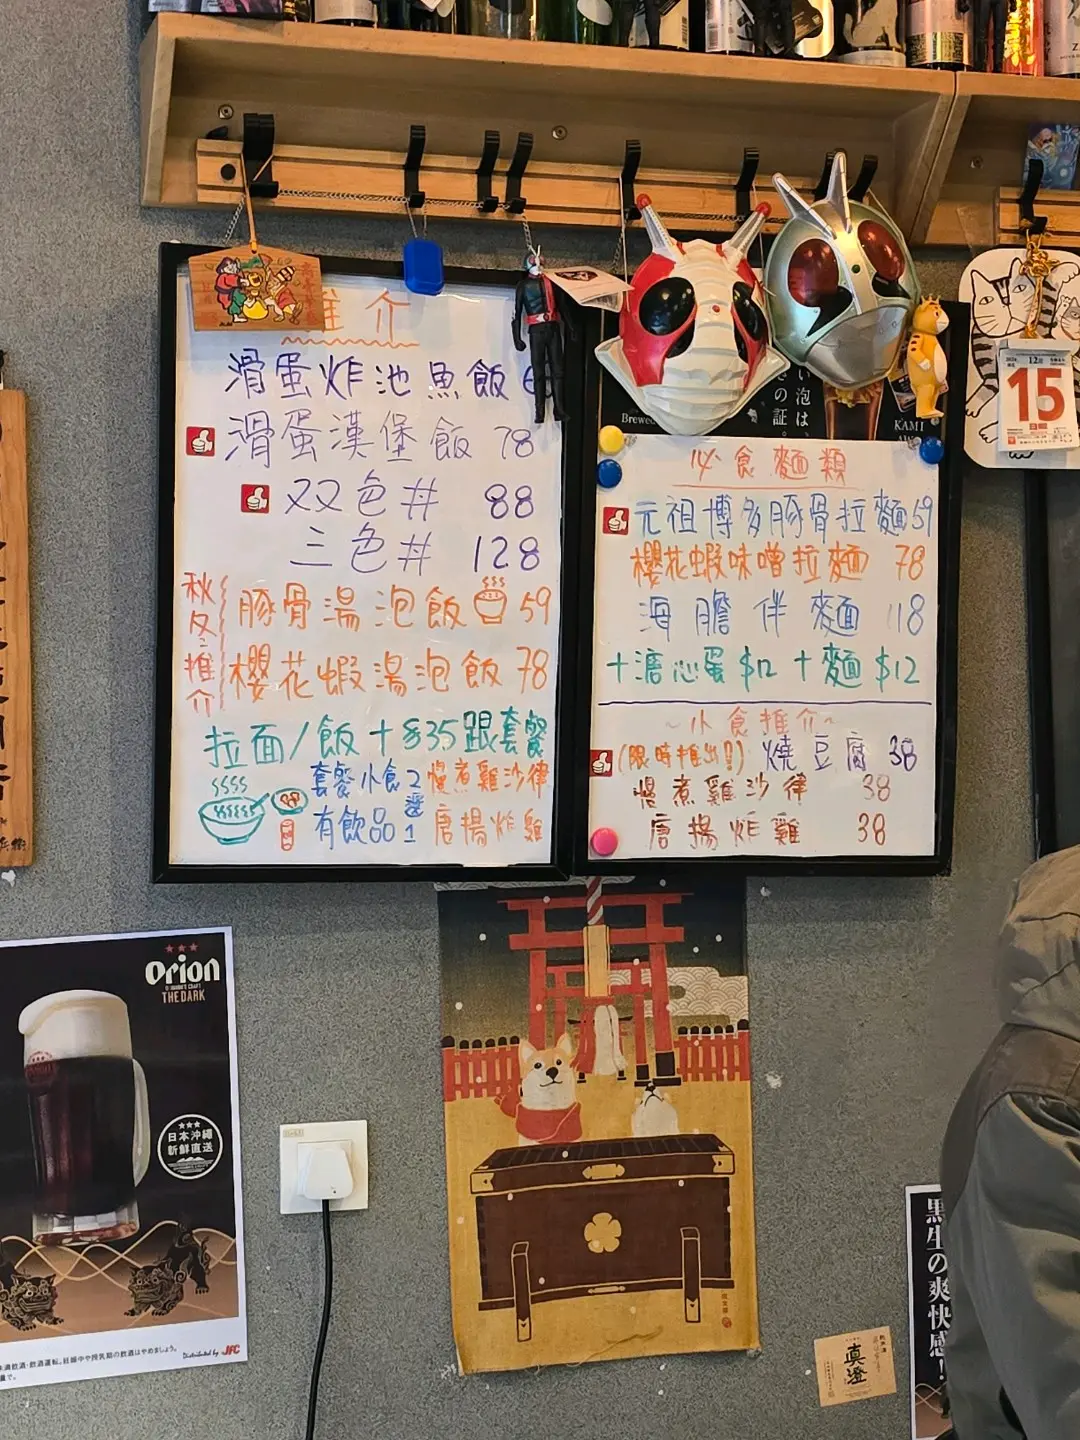 推介
滑蛋炸池魚飯
滑蛋漢堡飯 78
双色丼 88
三色丼 128
秋冬推介
豚骨湯泡飯 59
櫻花蝦湯泡飯 78
拉面/飯+$35跟套餐
套餐小食2選1
有飲品
慢煮雞沙律
唐揚炸雞
い泡は、
さの証。
Brewed
KAMI
12
15
必食麵類
元祖博多豚骨拉麵 59
櫻花蝦味噌拉麵 78
海膽伴麵 118
+溏心蛋$12 +麵$12
~小食推介~
(限時推出!!) 燒豆腐 38
慢煮雞沙律 38
唐揚炸雞 38
Orion
THE DARK
日本沖繩
新鮮直送
Distributed by JFC
黒生の爽快感!
真澄